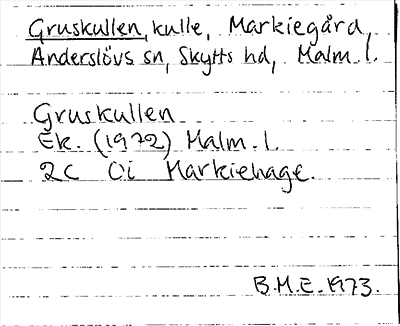 Gruskullen, kulle, Markiegård,
Anderslövs sn, Skytts hd, Malm. l.
Gruskullen
Ek. (1972) Malm. l.
2c Oi Markiehage.
B.M.E. 1973.